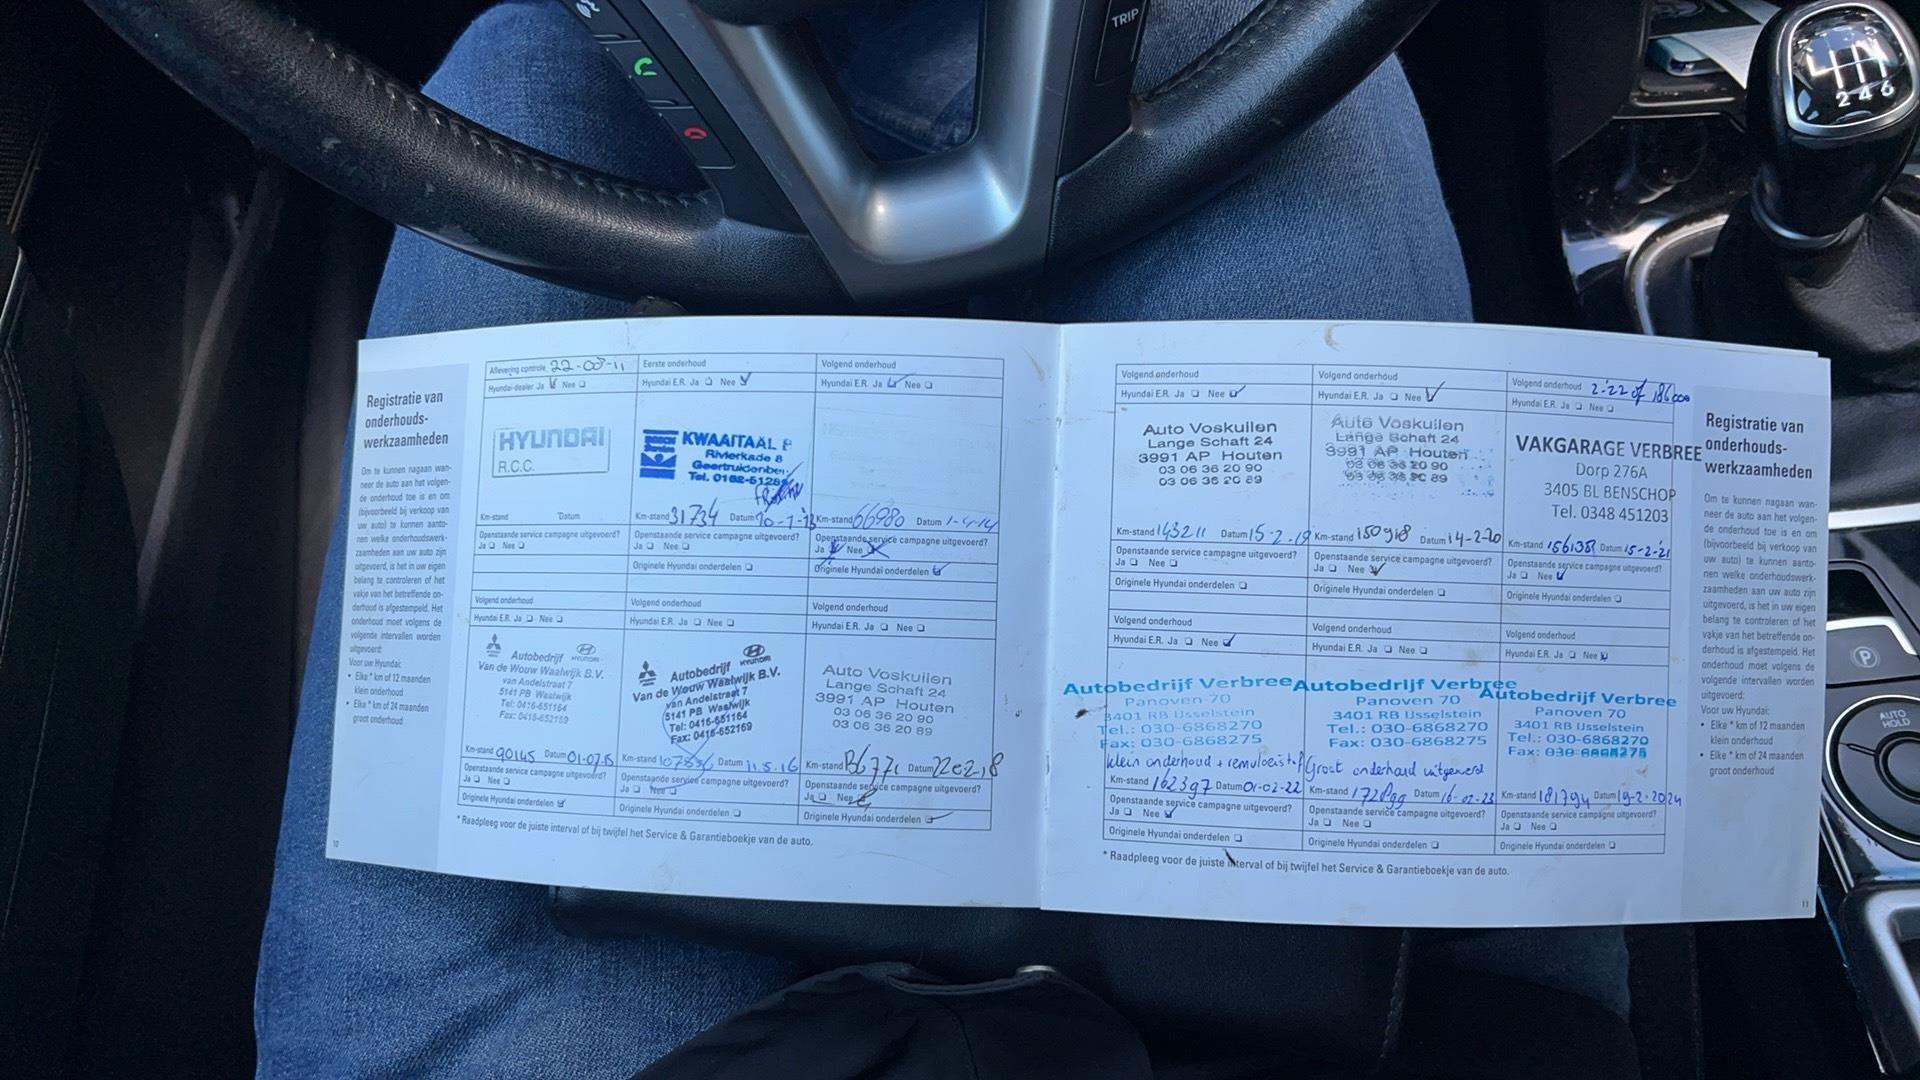 TRIP
2 4 6
P
AUTO
HOLD
Registratie van
onderhouds-
werkzaamheden
Om te kunnen nagaan wan-
neer de auto aan het volgen-
de onderhoud toe is en om
(bijvoorbeeld bij verkoop van
uw auto) te kunnen aanto-
nen welke onderhoudswerk-
zaamheden aan uw auto zijn
uitgevoerd, is het in uw eigen
belang te controleren of het
vakje van het betreffende on-
derhoud is afgestempeld. Het
onderhoud moet volgens de
volgende intervallen worden
uitgevoerd:
Voor uw Hyundai:
• Elke * km of 12 maanden
klein onderhoud
• Elke * km of 24 maanden
groot onderhoud
10
Aflevering controle 22-03-11
Hyundai-dealer Ja Nee
HYUNDAI
R.C.C.
Km-stand Datum
Openstaande service campagne uitgevoerd?
Ja Nee
Eerste onderhoud
Hyundai E.R. Ja Nee
BOSCH
Service
KWAAITAAL
Rivierkade 8
Geertruidenber
Tel. 0162-5128
Km-stand 31734 Datum
Openstaande service campagne uitgevoerd?
Ja Nee
Originele Hyundai onderdelen
Volgend onderhoud
Hyundai E.R. Ja Nee
Km-stand 66980 Datum 1-4-14
Openstaande service campagne uitgevoerd?
Ja Nee
Originele Hyundai onderdelen
Volgend onderhoud
Hyundai E.R. Ja Nee
Autobedrijf HYUNDAI
Van de Wouw Waalwijk B.V.
van Andelstraat 7
5141 PB Waalwijk
Tel: 0416-651164
Fax: 0416-652169
Km-stand 90145 Datum 01-07-15
Openstaande service campagne uitgevoerd?
Ja Nee
Originele Hyundai onderdelen
Volgend onderhoud
Hyundai E.R. Ja Nee
Autobedrijf HYUNDAI
Van de Wouw Waalwijk B.V.
van Andelstraat 7
5141 PB Waalwijk
Tel: 0416-651164
Fax: 0416-652169
Km-stand 107836 Datum 11.5.16
Openstaande service campagne uitgevoerd?
Ja Nee
Originele Hyundai onderdelen
Volgend onderhoud
Hyundai E.R. Ja Nee
Auto Voskuilen
Lange Schaft 24
3991 AP Houten
03 06 36 20 90
03 06 36 20 89
Km-stand Datum 22-02-18
Openstaande service campagne uitgevoerd?
Ja Nee
Originele Hyundai onderdelen
* Raadpleeg voor de juiste interval of bij twijfel het Service & Garantieboekje van de auto.
Volgend onderhoud
Hyundai E.R. Ja Nee
Auto Voskuilen
Lange Schaft 24
3991 AP Houten
03 06 36 20 90
03 06 36 20 89
Km-stand 143211 Datum 15-2-19
Openstaande service campagne uitgevoerd?
Ja Nee
Originele Hyundai onderdelen
Volgend onderhoud
Hyundai E.R. Ja Nee
Auto Voskuilen
Lange Schaft 24
3991 AP Houten
03 06 36 20 90
03 06 36 20 89
Km-stand 150918 Datum 14-2-20
Openstaande service campagne uitgevoerd?
Ja Nee
Originele Hyundai onderdelen
Volgend onderhoud 2-'22 of 186000
Hyundai E.R. Ja Nee
VAKGARAGE VERBREE
Dorp 276A
3405 BL BENSCHOP
Tel. 0348 451203
Km-stand 156138 Datum 15-2-'21
Openstaande service campagne uitgevoerd?
Ja Nee
Originele Hyundai onderdelen
Volgend onderhoud
Hyundai E.R. Ja Nee
Autobedrijf Verbree
Panoven 70
3401 RB IJsselstein
Tel.: 030-6868270
Fax: 030-6868275
klein onderhoud + remvloeistof
Km-stand 162397 Datum 01-02-22
Openstaande service campagne uitgevoerd?
Ja Nee
Originele Hyundai onderdelen
Volgend onderhoud
Hyundai E.R. Ja Nee
Autobedrijf Verbree
Panoven 70
3401 RB IJsselstein
Tel.: 030-6868270
Fax: 030-6868275
Groot onderhoud uitgevoerd
Km-stand Datum 16-02-23
Openstaande service campagne uitgevoerd?
Ja Nee
Originele Hyundai onderdelen
Volgend onderhoud
Hyundai E.R. Ja Nee
Autobedrijf Verbree
Panoven 70
3401 RB IJsselstein
Tel.: 030-6868270
Fax: 030-6868275
Km-stand 181794 Datum 19-2-2024
Openstaande service campagne uitgevoerd?
Ja Nee
Originele Hyundai onderdelen
* Raadpleeg voor de juiste interval of bij twijfel het Service & Garantieboekje van de auto.
Registratie van
onderhouds-
werkzaamheden
Om te kunnen nagaan wan-
neer de auto aan het volgen-
de onderhoud toe is en om
(bijvoorbeeld bij verkoop van
uw auto) te kunnen aanto-
nen welke onderhoudswerk-
zaamheden aan uw auto zijn
uitgevoerd, is het in uw eigen
belang te controleren of het
vakje van het betreffende on-
derhoud is afgestempeld. Het
onderhoud moet volgens de
volgende intervallen worden
uitgevoerd:
Voor uw Hyundai:
• Elke * km of 12 maanden
klein onderhoud
• Elke * km of 24 maanden
groot onderhoud
11